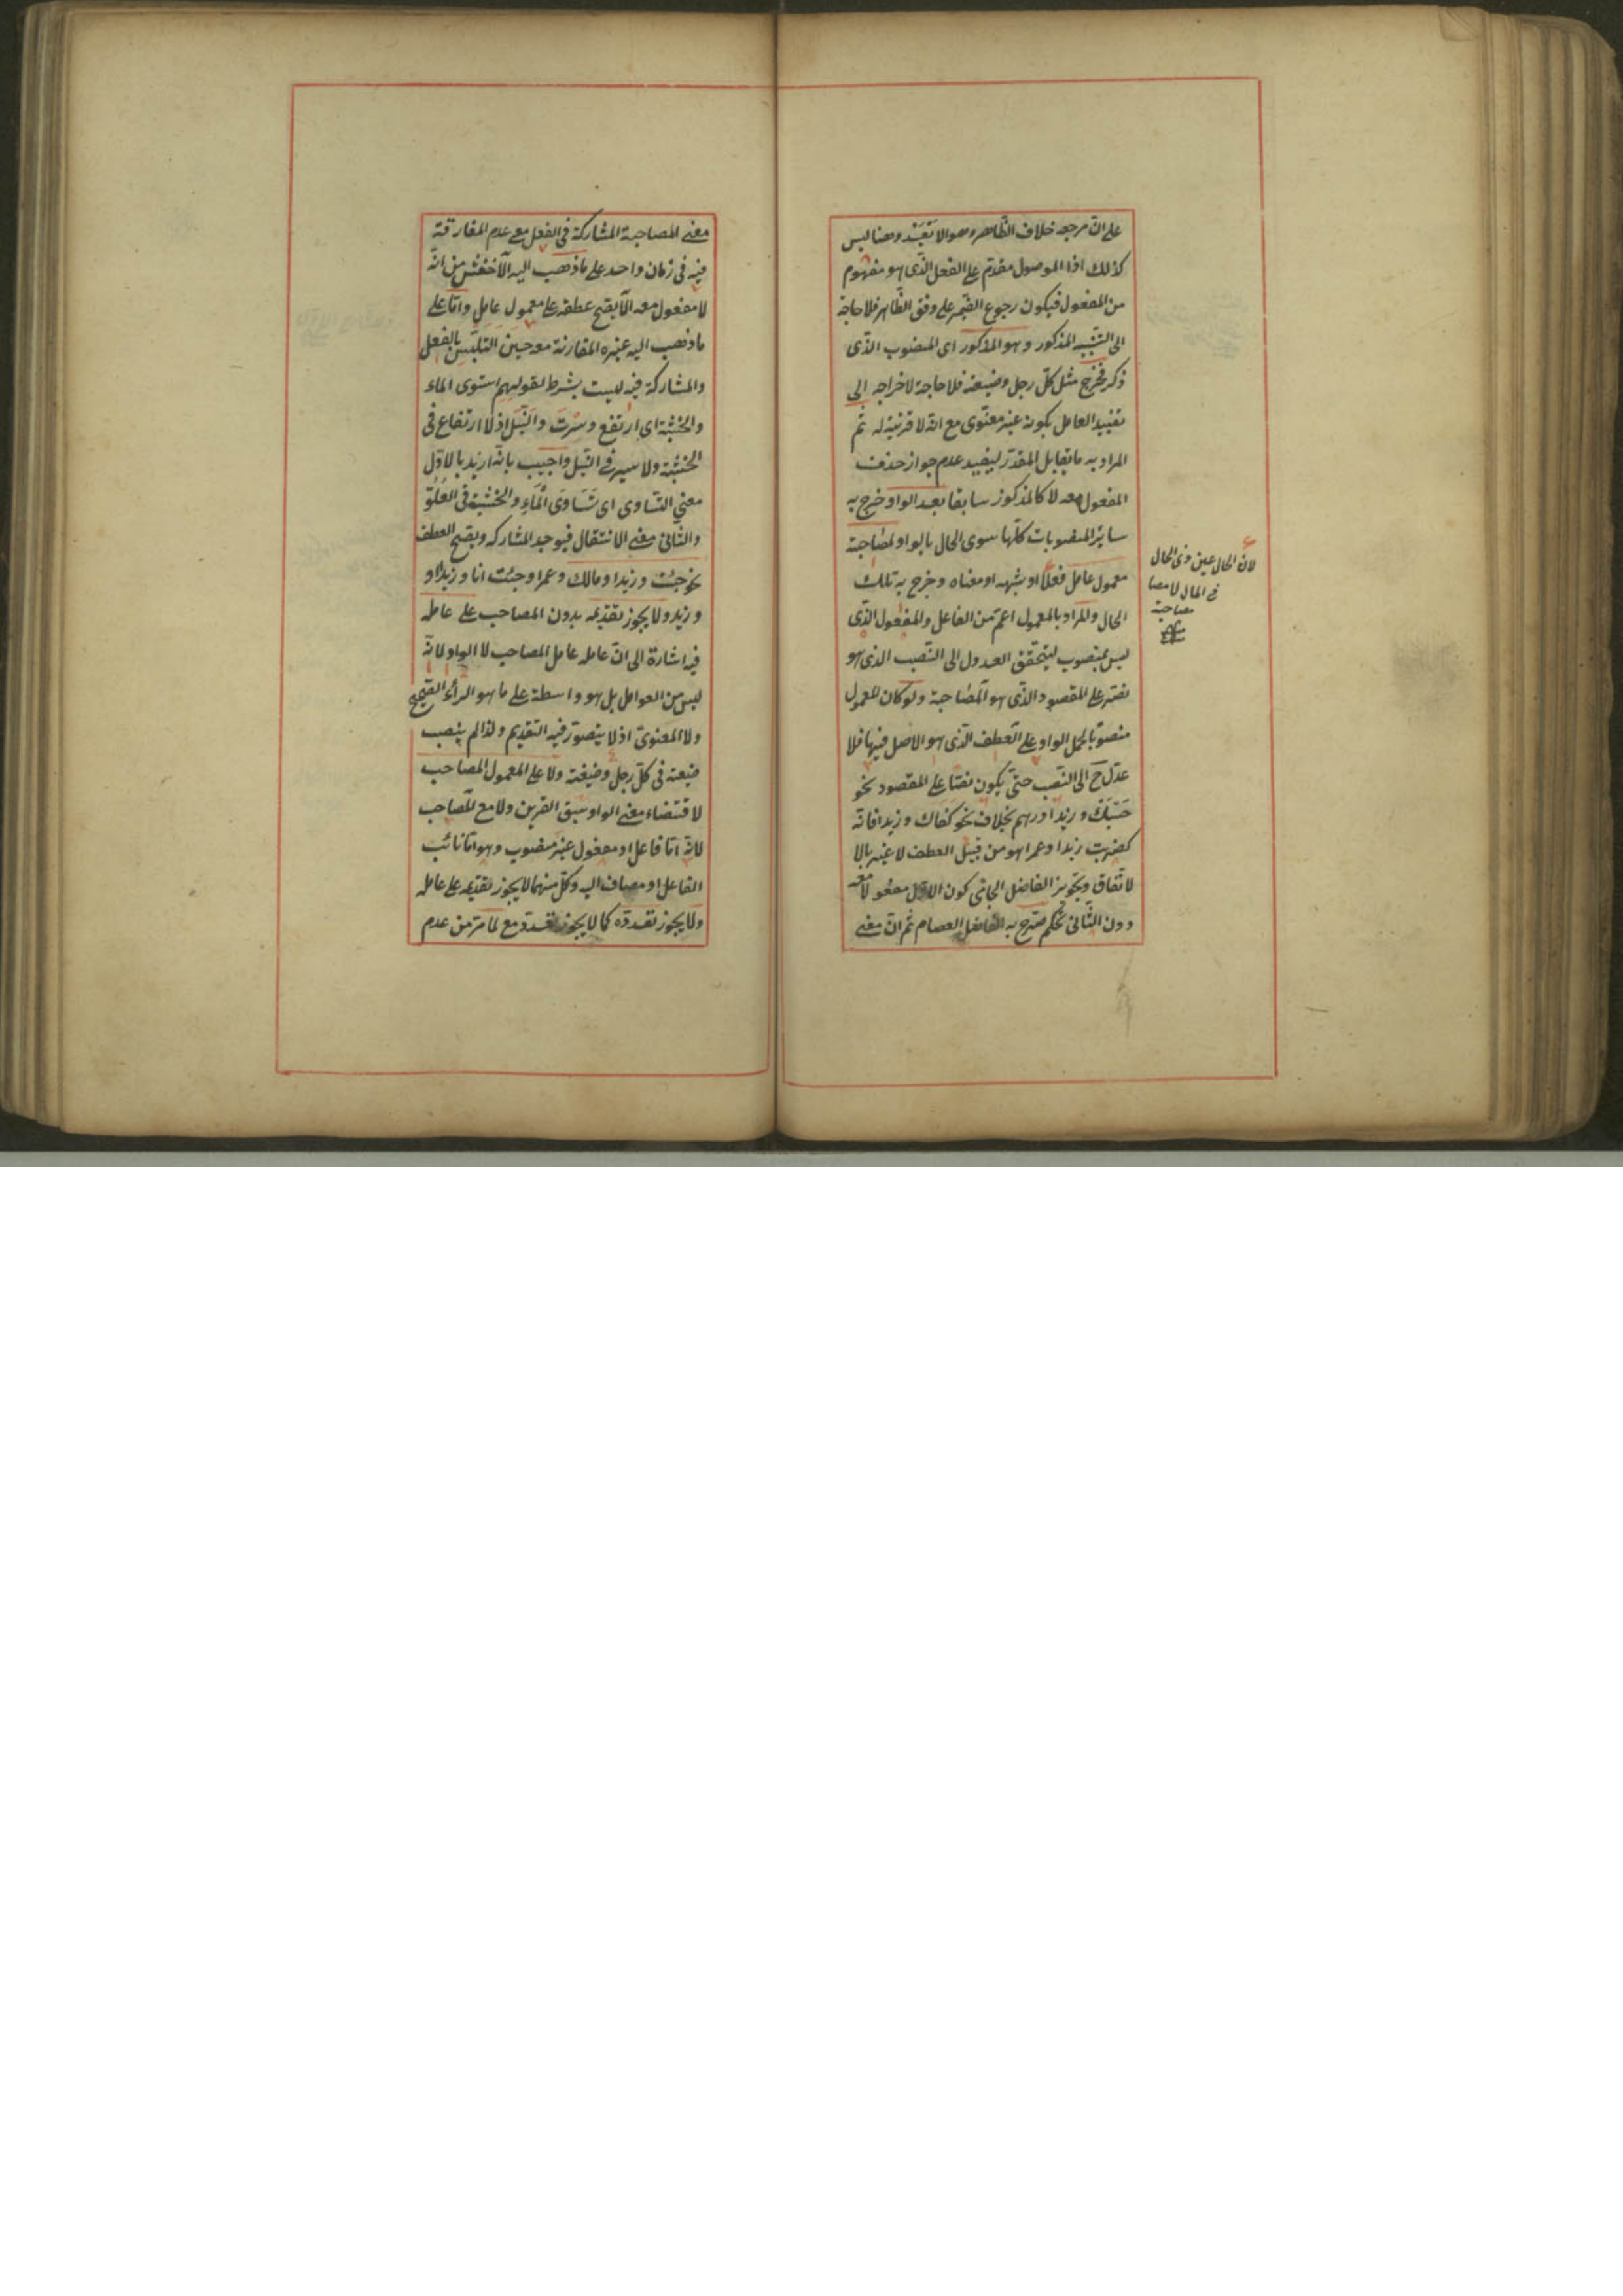 على ان مرجعه خلاف الظاهر وهو الا تعبّد وهنا ليس
كذلك اذا الموصول مقدم على الفعل الذى هو مفهوم
من المفعول فيكون رجوع الضمير على وفق الظاهر فلا حاجة
الى التنبيه المذكور وهو المذكور اى المنصوب الذى
ذكر فخرج مثل كلّ رجل وضيعته فلا حاجة لاخراجه الى
تقييد العامل بكونه غير معنوى مع انه لا قرينة له ثم
المراد به ما يقابل المقدّر ليفيد عدم جواز حذف
المفعول معه لا كالمذكور سابقا بعد الواو خرج به
سائر المنصوبات كلّها سوى الحال بالواو لمصاحبة
معمول عامل فعلا او شبهه او معناه وخرج به تلك
الحال والمراد بالمعمول اعمّ من الفاعل والمفعول الذى
ليس بمنصوب ليتحقق العدول الى النصب الذى هو
نصّ على المقصود الذى هو المصاحبة ولو كان المعمول
منصوبا لحمل الواو على العطف الذى هو الاصل فيها فلا
عدل ح الى النصب حتى يكون نصّا على المقصود نحو
حسبك وزيدا درهم بخلاف نحو كفاك وزيدا فانه
كضربت زيدا وعمرا هو من قبيل العطف لا غير بالا
لاتفاق وتجويز الفاضل الجامى كون الاول مفعولا معه
دون الثانى تحكم صرّح به الفاضل العصام ثم ان معنى
لان الحال عين ذى الحال
فى المال لا مصا
مصاحبة
معنى المصاحبة المشاركة فى الفعل مع عدم المفارقة
فيه فى زمان واحد على ما ذهب اليه الاخفش من انه
لا مفعول معه الا يصح عطفه على معمول عامل واما على
ما ذهب اليه غيره المقارنة معه حين التلبس بالفعل
والمشاركة فيه ليست بشرط لقولهم استوى الماء
والخشبة اى ارتفع وسرت والنيل اذ لا ارتفاع فى
الخشبة ولا سير فى النيل واجيب بانه اريد بالاول
معنى التساوى اى تساوى الماء والخشبة فى العلو
والثانى معنى الانتقال فيوجد المشاركة ويصح العطف
نحو جئت وزيدا ومالك وعمرا وجئت انا وزيدا و
وزيد ولا يجوز تقديمه بدون المصاحب على عامله
فيه اشارة الى ان عامله عامل المصاحب لا الواو لانه
ليس من العوامل بل هو واسطة على ما هو الرأى الصحيح
ولا المعنوىّ اذ لا يتصوّر فيه التقديم ولذا لم ينصب
ضيعته فى كلّ رجل وضيعته ولا على المعمول المصاحب
لاقتضاء معنى الواو سبق القرين ولا مع المصاحب
لانه امّا فاعل او مفعول غير منصوب وهو امّا نائب
الفاعل او مضاف اليه وكلّ منهما لا يجوز تقديمه على عامله
ولا يجوز تعدده كما لا يجوز مع لما مرّ من عدم